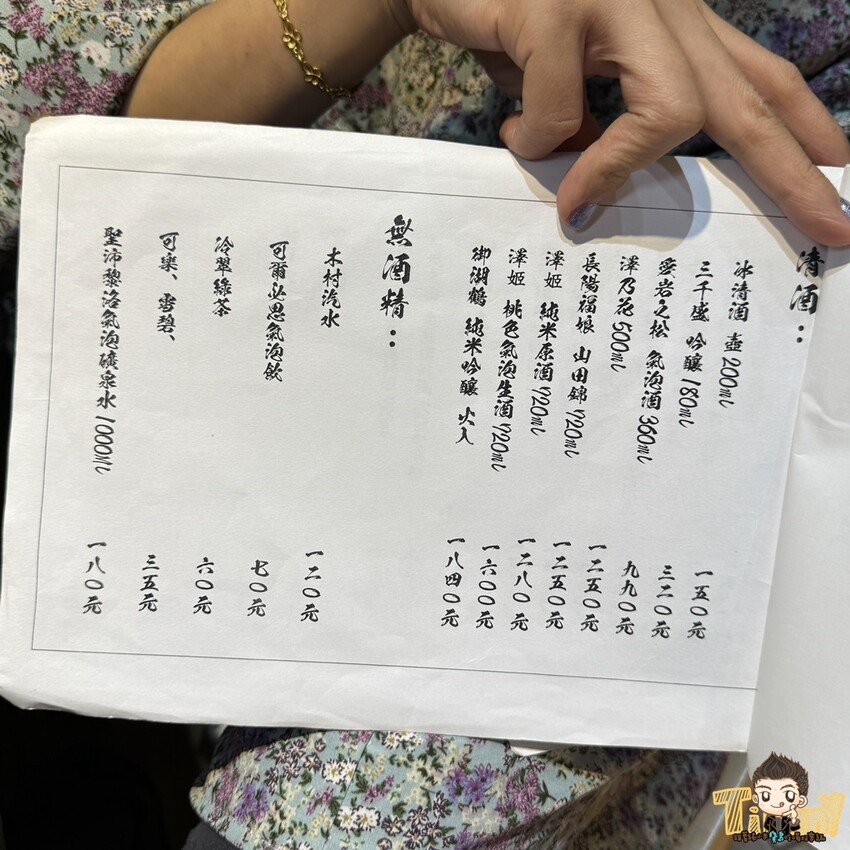 清酒：
冰清酒 壺 200ml 一五0元
三千盛 吟釀 180ml 三二0元
愛岩之松 氣泡酒 360ml 九九0元
澤乃花 500ml 一二五0元
長陽福娘 山田錦 720ml 一二五0元
澤姬 純米原酒 720ml 一二八0元
澤姬 桃色氣泡生酒 720ml 一六00元
御湖鶴 純米吟釀 火入 一八四0元
無酒精：
木村汽水 一二0元
可爾必思氣泡飲 七0元
冷翠綠茶 六0元
可樂、雪碧、 三五元
聖沛黎洛氣泡礦泉水 1000ml 一八0元